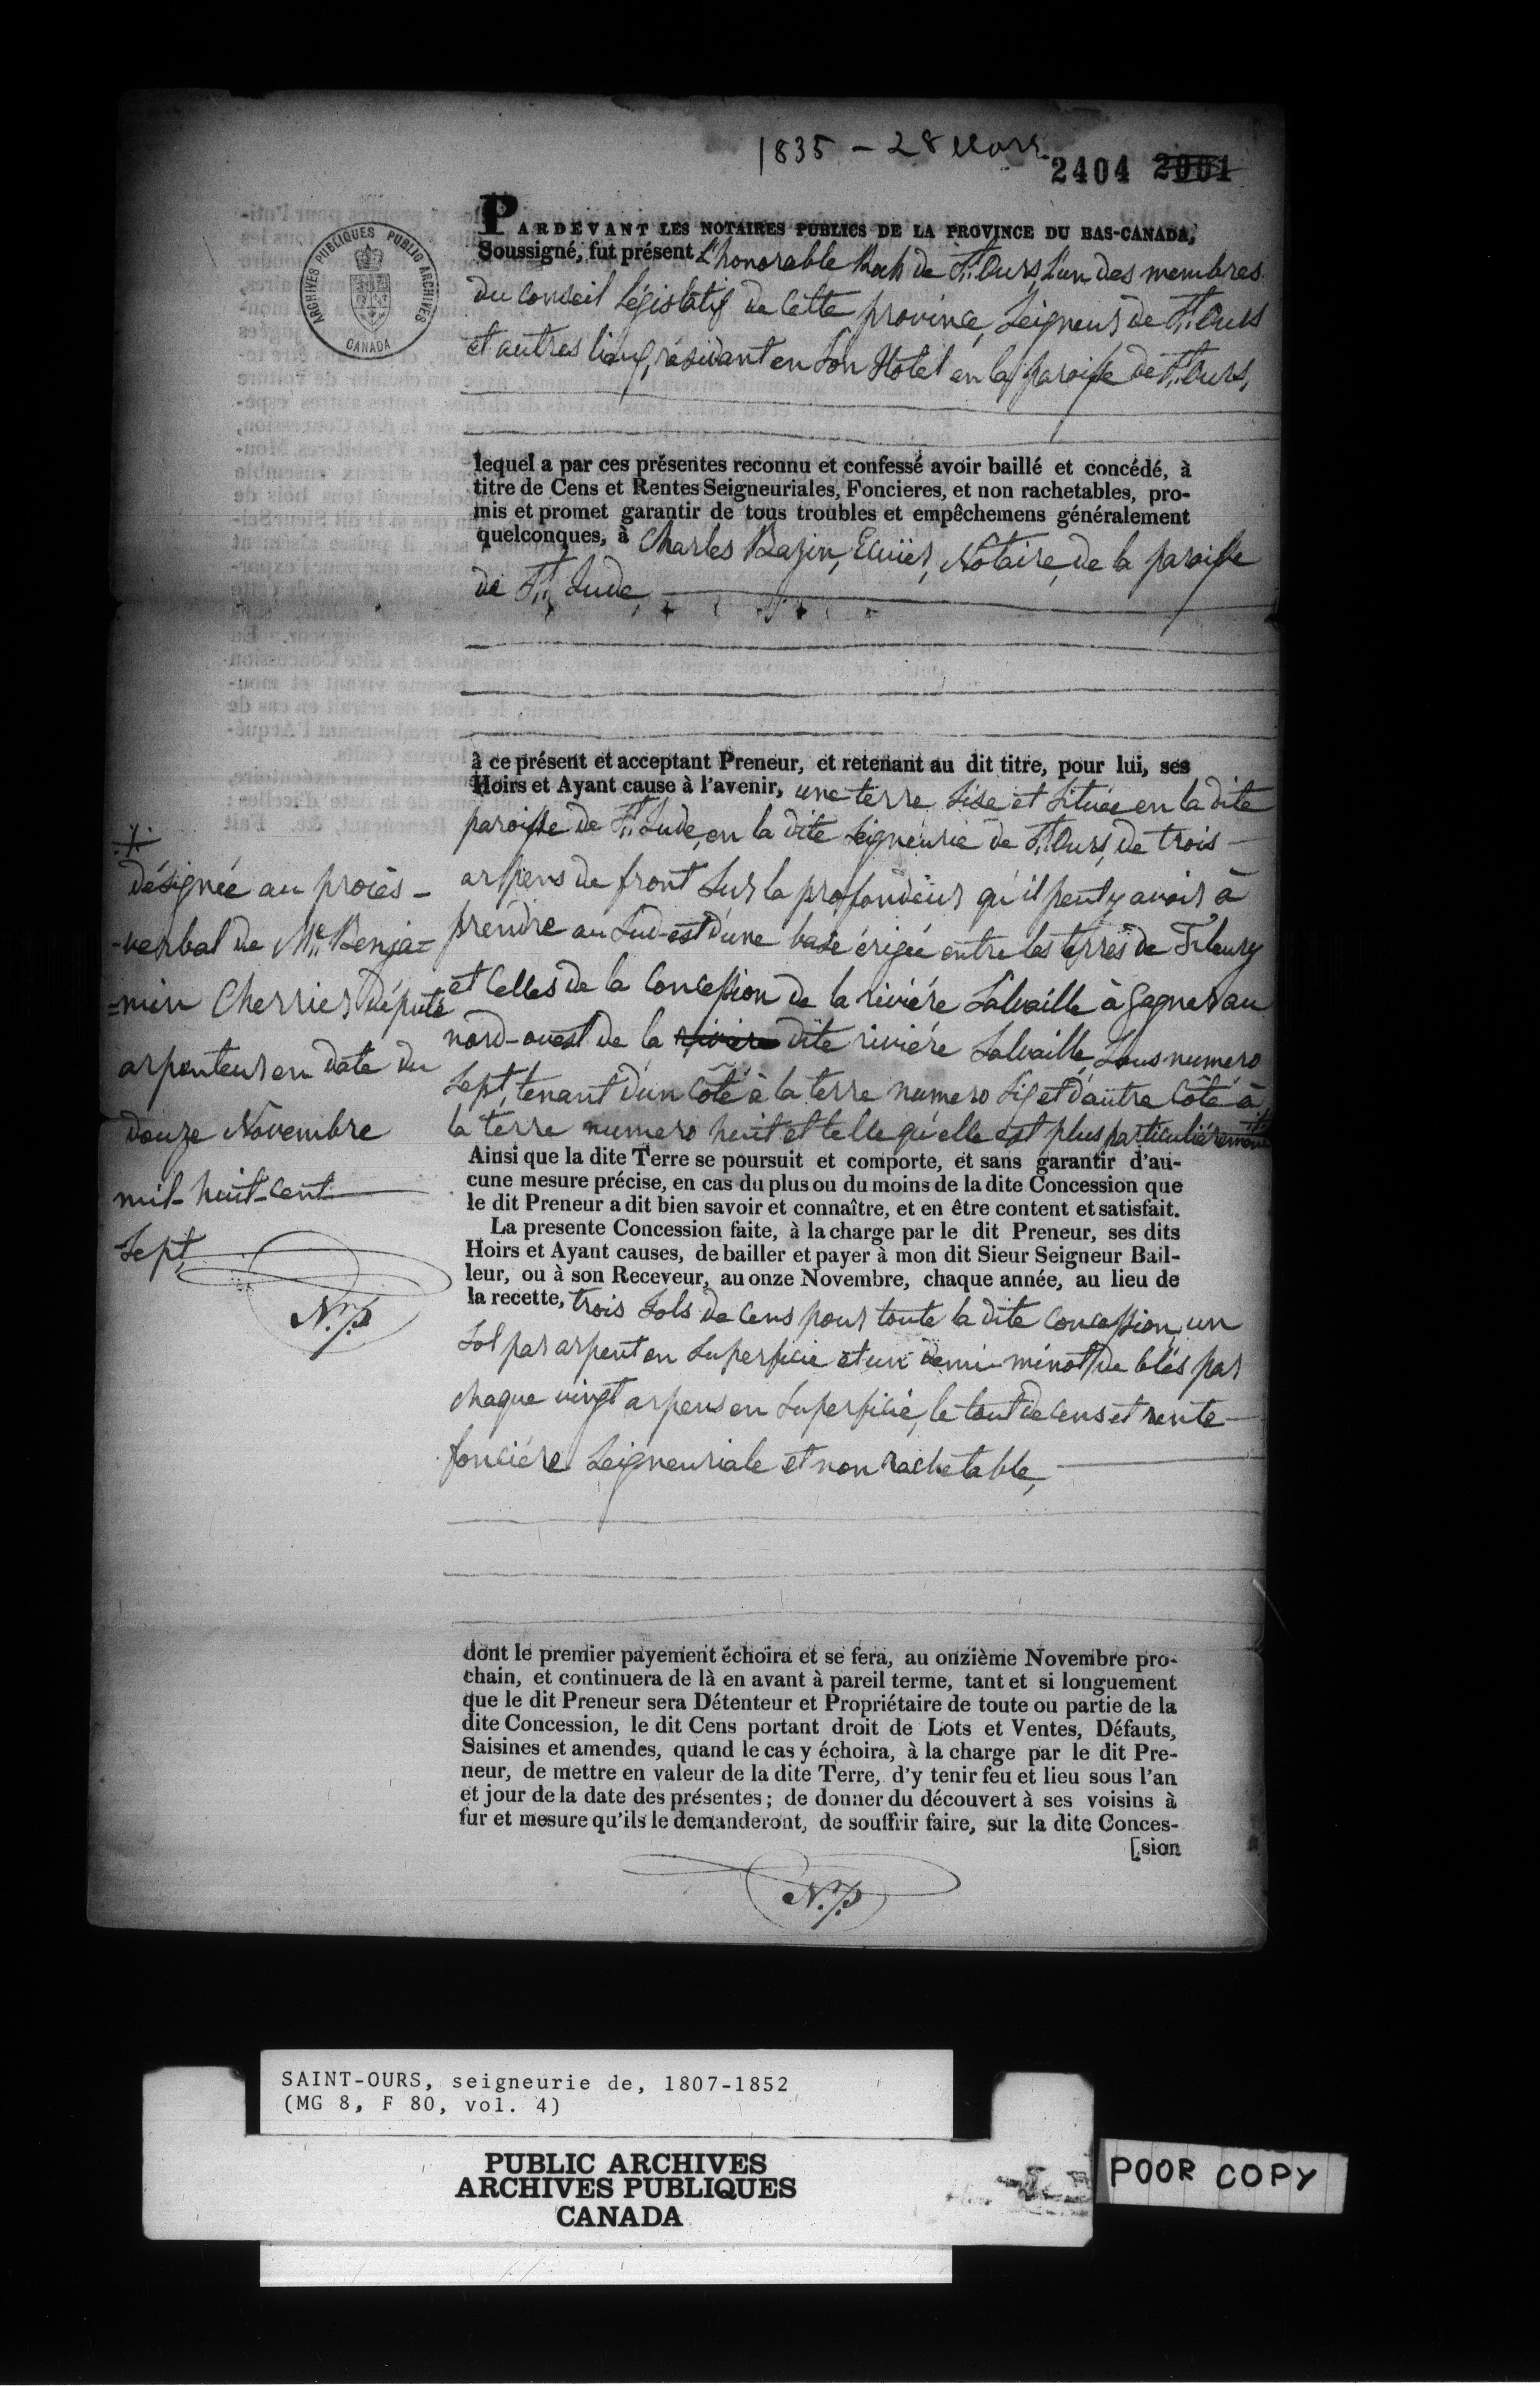 1835 - 28 Mars
2404 2001
PARDEVANT LES NOTAIRES PUBLICS DE LA PROVINCE DU BAS-CANADA,
Soussigné, fut présent L'honorable Roch de St. Ours, l'un des membres
du Conseil Législatif de Cette province, Seigneur de St. Ours
et autres lieux, résidant en Son Hotel en la paroisse de St. Ours,
ARCHIVES PUBLIQUES PUBLIC ARCHIVES
CANADA
lequel a par ces présentes reconnu et confessé avoir baillé et concédé, à
titre de Cens et Rentes Seigneuriales, Foncieres, et non rachetables, pro-
mis et promet garantir de tous troubles et empêchemens généralement
quelconques, à Charles Bazin, Ecuïer, Notaire, de la paroisse
de St. Jude,
à ce présent et acceptant Preneur, et retenant au dit titre, pour lui, ses
Hoirs et Ayant cause à l'avenir, une terre Sise et Située en la dite
paroisse de St. Jude, en la dite Seigneurie de St. Ours, de trois
arpens de front Sur la profondeur qu'il peut y avoir à
prendre au Sud-est d'une base érigée entre les terres de Fleury
et Celles de la Concession de la riviére Salvaille à gagner au
nord-ouest de la riviere dite riviére Salvaille, Sous numero
Sept, tenant d'un Côté à la terre numero Six et d'autre Côté à
la terre numero huit et telle qu'elle est plus particuliérement
désignée au procès-
-verbal de Me. Benja=
=min Cherrier député
arpenteur en date du
douze Novembre
mil-huit-cent
Sept,
N.P.
Ainsi que la dite Terre se poursuit et comporte, et sans garantir d'au-
cune mesure précise, en cas du plus ou du moins de la dite Concession que
le dit Preneur a dit bien savoir et connaître, et en être content et satisfait.
La presente Concession faite, à la charge par le dit Preneur, ses dits
Hoirs et Ayant causes, de bailler et payer à mon dit Sieur Seigneur Bail-
leur, ou à son Receveur, au onze Novembre, chaque année, au lieu de
la recette, trois Sols de Cens pour toute la dite Concession, un
Sol par arpent en Superficie et un demi-minot de blés par
chaque vingt arpens en Superficie, le tout de Cens et rente
fonciére Seigneuriale et non rachetable,
dont le premier payement échoira et se fera, au onzième Novembre pro-
chain, et continuera de là en avant à pareil terme, tant et si longuement
que le dit Preneur sera Détenteur et Propriétaire de toute ou partie de la
dite Concession, le dit Cens portant droit de Lots et Ventes, Défauts,
Saisines et amendes, quand le cas y échoira, à la charge par le dit Pre-
neur, de mettre en valeur de la dite Terre, d'y tenir feu et lieu sous l'an
et jour de la date des présentes ; de donner du découvert à ses voisins à
fur et mesure qu'ils le demanderont, de souffrir faire, sur la dite Conces-
[sion
N.P.
SAINT-OURS, seigneurie de, 1807-1852
(MG 8, F 80, vol. 4)
PUBLIC ARCHIVES
ARCHIVES PUBLIQUES
CANADA
POOR COPY